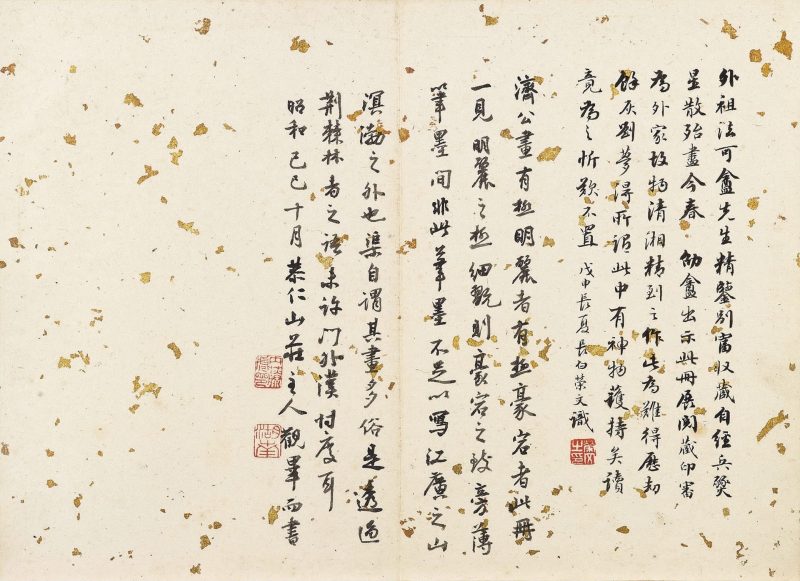 外祖法可盦先生精鑒別富收藏自經兵燹
星散殆盡今春 劬盦出示此冊展閱藏印審
為外家故物清湘精到之作此為難得應劫
餘灰劉夢得所謂此中有神物護持矣讀
竟為之忻歎不置 戊申長夏長白榮文識
濟公畫有極明麗者有極豪宕者此冊
一見明麗之極細翫則豪宕之致旁薄
筆墨間非此筆墨不足以寫江廣之山
溟渤之外也渠自謂其畫多俗是透過
荊棘林者之語未許門外漢忖度耳
昭和己巳十月恭仁山莊主人觀畢而書